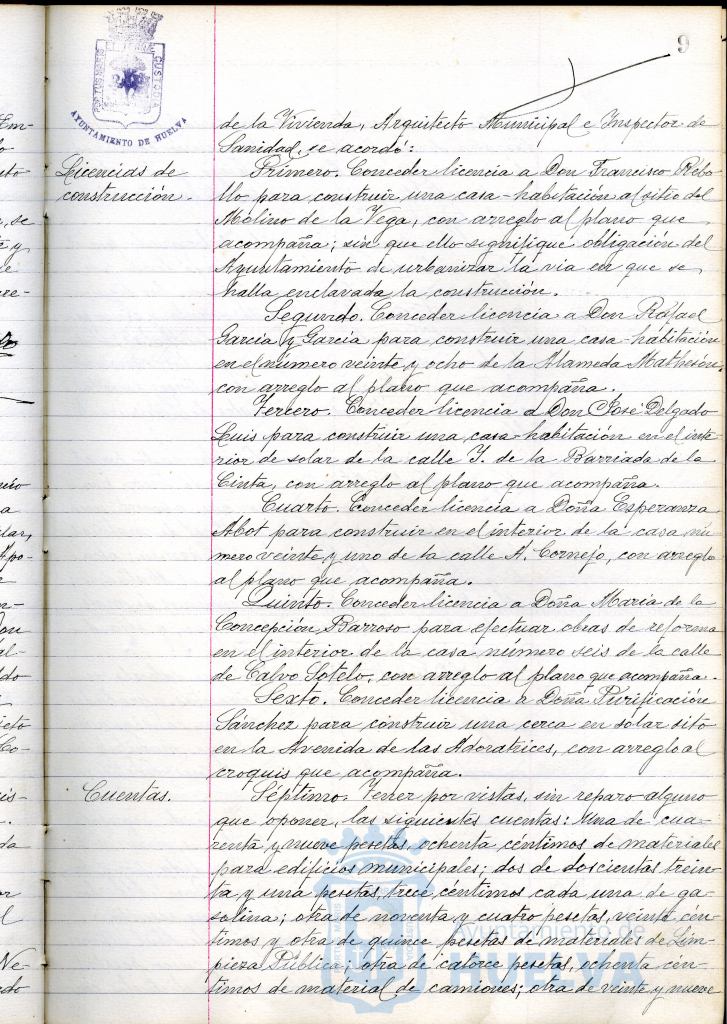 9
PORTUS MARIS
CUSTODIA
AYUNTAMIENTO DE HUELVA
de la Vivienda, Arquitecto Municipal e Inspector de
Sanidad, se acordó:
Licencias de
construcción.
Primero. Conceder licencia a Don Francisco Rebo-
llo para construir una casa-habitación al sitio del
Molino de la Vega, con arreglo al plano que
acompaña; sin que ello signifique obligación del
Ayuntamiento de urbanizar la via en que se
halla enclavada la construcción.
Segundo. Conceder licencia a Don Rafael
Garcia y Garcia para construir una casa-habitación
en el número veinte y ocho de la Alameda Mathesón,
con arreglo al plano que acompaña.
Tercero. Conceder licencia a Don José Delgado
Luis para construir una casa-habitación en el inte-
rior de solar de la calle Y. de la Barriada de la
Cinta, con arreglo al plano que acompaña.
Cuarto. Conceder licencia a Doña Esperanza
Abot para construir en el interior de la casa nú-
mero veinte y uno de la calle A. Cornejo, con arreglo
al plano que acompaña.
Quinto. Conceder licencia a Doña Maria de la
Concepción Barroso para efectuar obras de reforma
en el interior de la casa número seis de la calle
de Calvo Sotelo, con arreglo al plano que acompaña.
Sexto. Conceder licencia a Doña Purificación
Sánchez para construir una cerca en solar sito
en la Avenida de las Adoratrices, con arreglo al
croquis que acompaña.
Cuentas.
Séptimo. Tener por vistas, sin reparo alguno
que oponer, las siguientes cuentas: Una de cua-
renta y nueve pesetas, ochenta céntimos de materiales
para edificios municipales; dos de doscientas trein-
ta y una pesetas, trece céntimos cada una de ga-
solina; otra de noventa y cuatro pesetas, veinte cén-
timos y otra de quince pesetas de materiales de Lim-
pieza Pública; otra de catorce pesetas, ochenta cén-
timos de material de camiones; otra de veinte y nueve
Ayuntamiento de
HUELVA